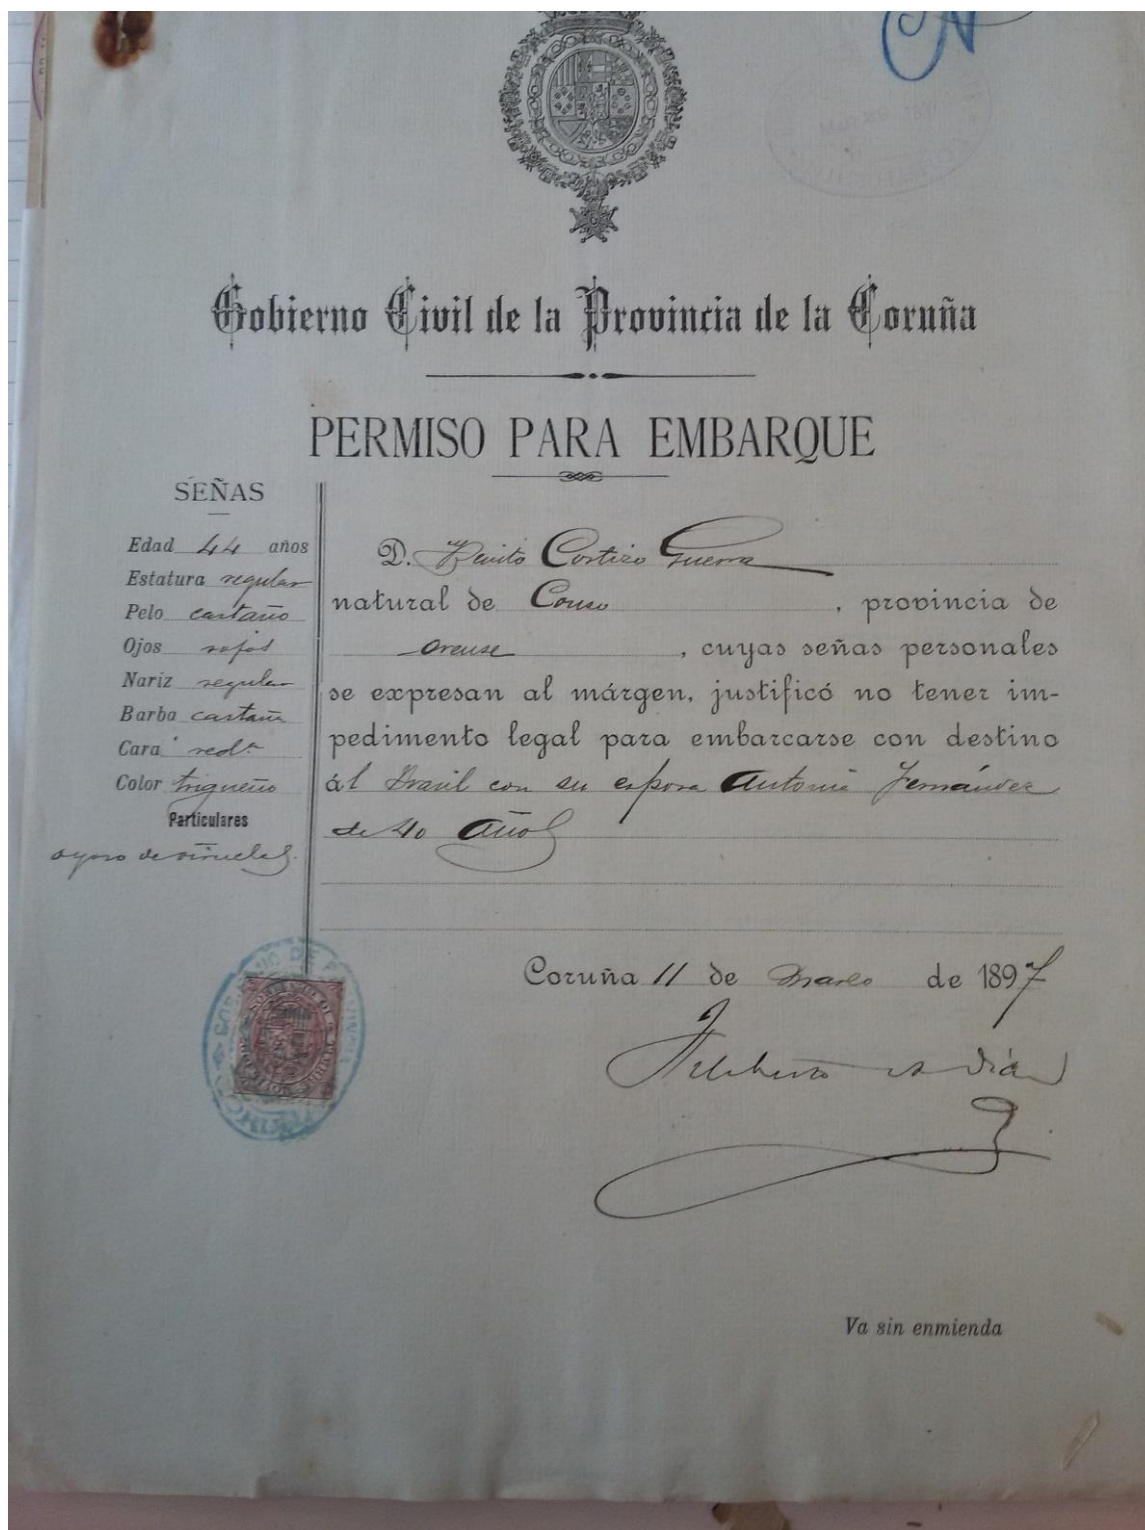 Gobierno Civil de la Provincia de la Coruña
PERMISO PARA EMBARQUE
SEÑAS
Edad 44 años
Estatura regular
Pelo castaño
Ojos rojos
Nariz regular
Barba castaña
Cara red.a
Color trigueño
Particulares
oyoso de viruelas.
D. Benito Cortizo Guerra
natural de Couso, provincia de
Orense, cuyas señas personales
se expresan al márgen, justificó no tener im-
pedimento legal para embarcarse con destino
ál Brasil con su esposa Antonia Fernández
de 40 Años
Coruña 11 de Marzo de 1897
Va sin enmienda